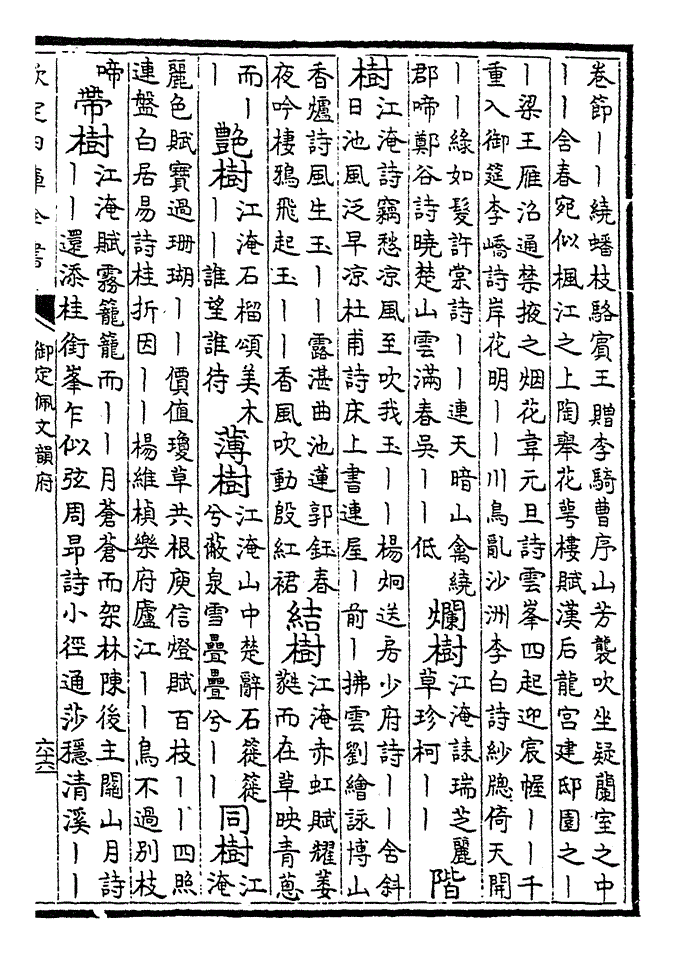 卷節丨丨繞蟠枝駱賓王贈李騎曹序山芳襲吹坐疑蘭室之中
丨丨舍春宛似楓江之上陶舉花萼樓賦漢后龍宫建邸園之丨
丨梁王雁沼通禁掖之烟花韋元旦詩雲峯四起迎宸幄丨丨千
重入御筵李嶠詩岸花明丨丨川鳥亂沙洲李白詩紗牕倚天開
丨丨緣如髮許棠詩丨丨連天暗山禽繞
郡啼鄭谷詩曉楚山雲滿春吳丨丨低
爛樹
江淹誄瑞芝麗
草珍柯丨丨
階
樹
江淹詩竊愁凉風至吹我玉丨丨楊炯送房少府詩丨丨舍斜
日池風泛早凉杜甫詩床上書連屋丨前丨拂雲劉繪詠博山
香爐詩風生玉丨丨露湛曲池蓮郭鈺春
夜吟棲鴉飛起玉丨丨香風吹動殷紅裙
結樹
江淹赤虹賦耀萎
蕤而在草映青蔥
而丨
丨
艷樹
江淹石榴頌美木
丨丨誰望誰待
薄樹
江淹山中楚辭石簁簁
兮蔽泉雪疊疊兮丨丨
同樹
江
淹
麗色賦寶過珊瑚丨丨價值瓊草共根庾信燈賦百枝丨丨四照
連盤白居易詩桂折因丨丨楊維楨樂府廬江丨丨鳥不過别枝
啼
帶樹
江淹賦霧籠籠而丨丨月蒼蒼而架林陳後主關山月詩
丨丨還添桂銜峯乍似弦周昂詩小徑通莎穩清溪丨丨
欽定四庫全書
御定佩文韻府
六十六